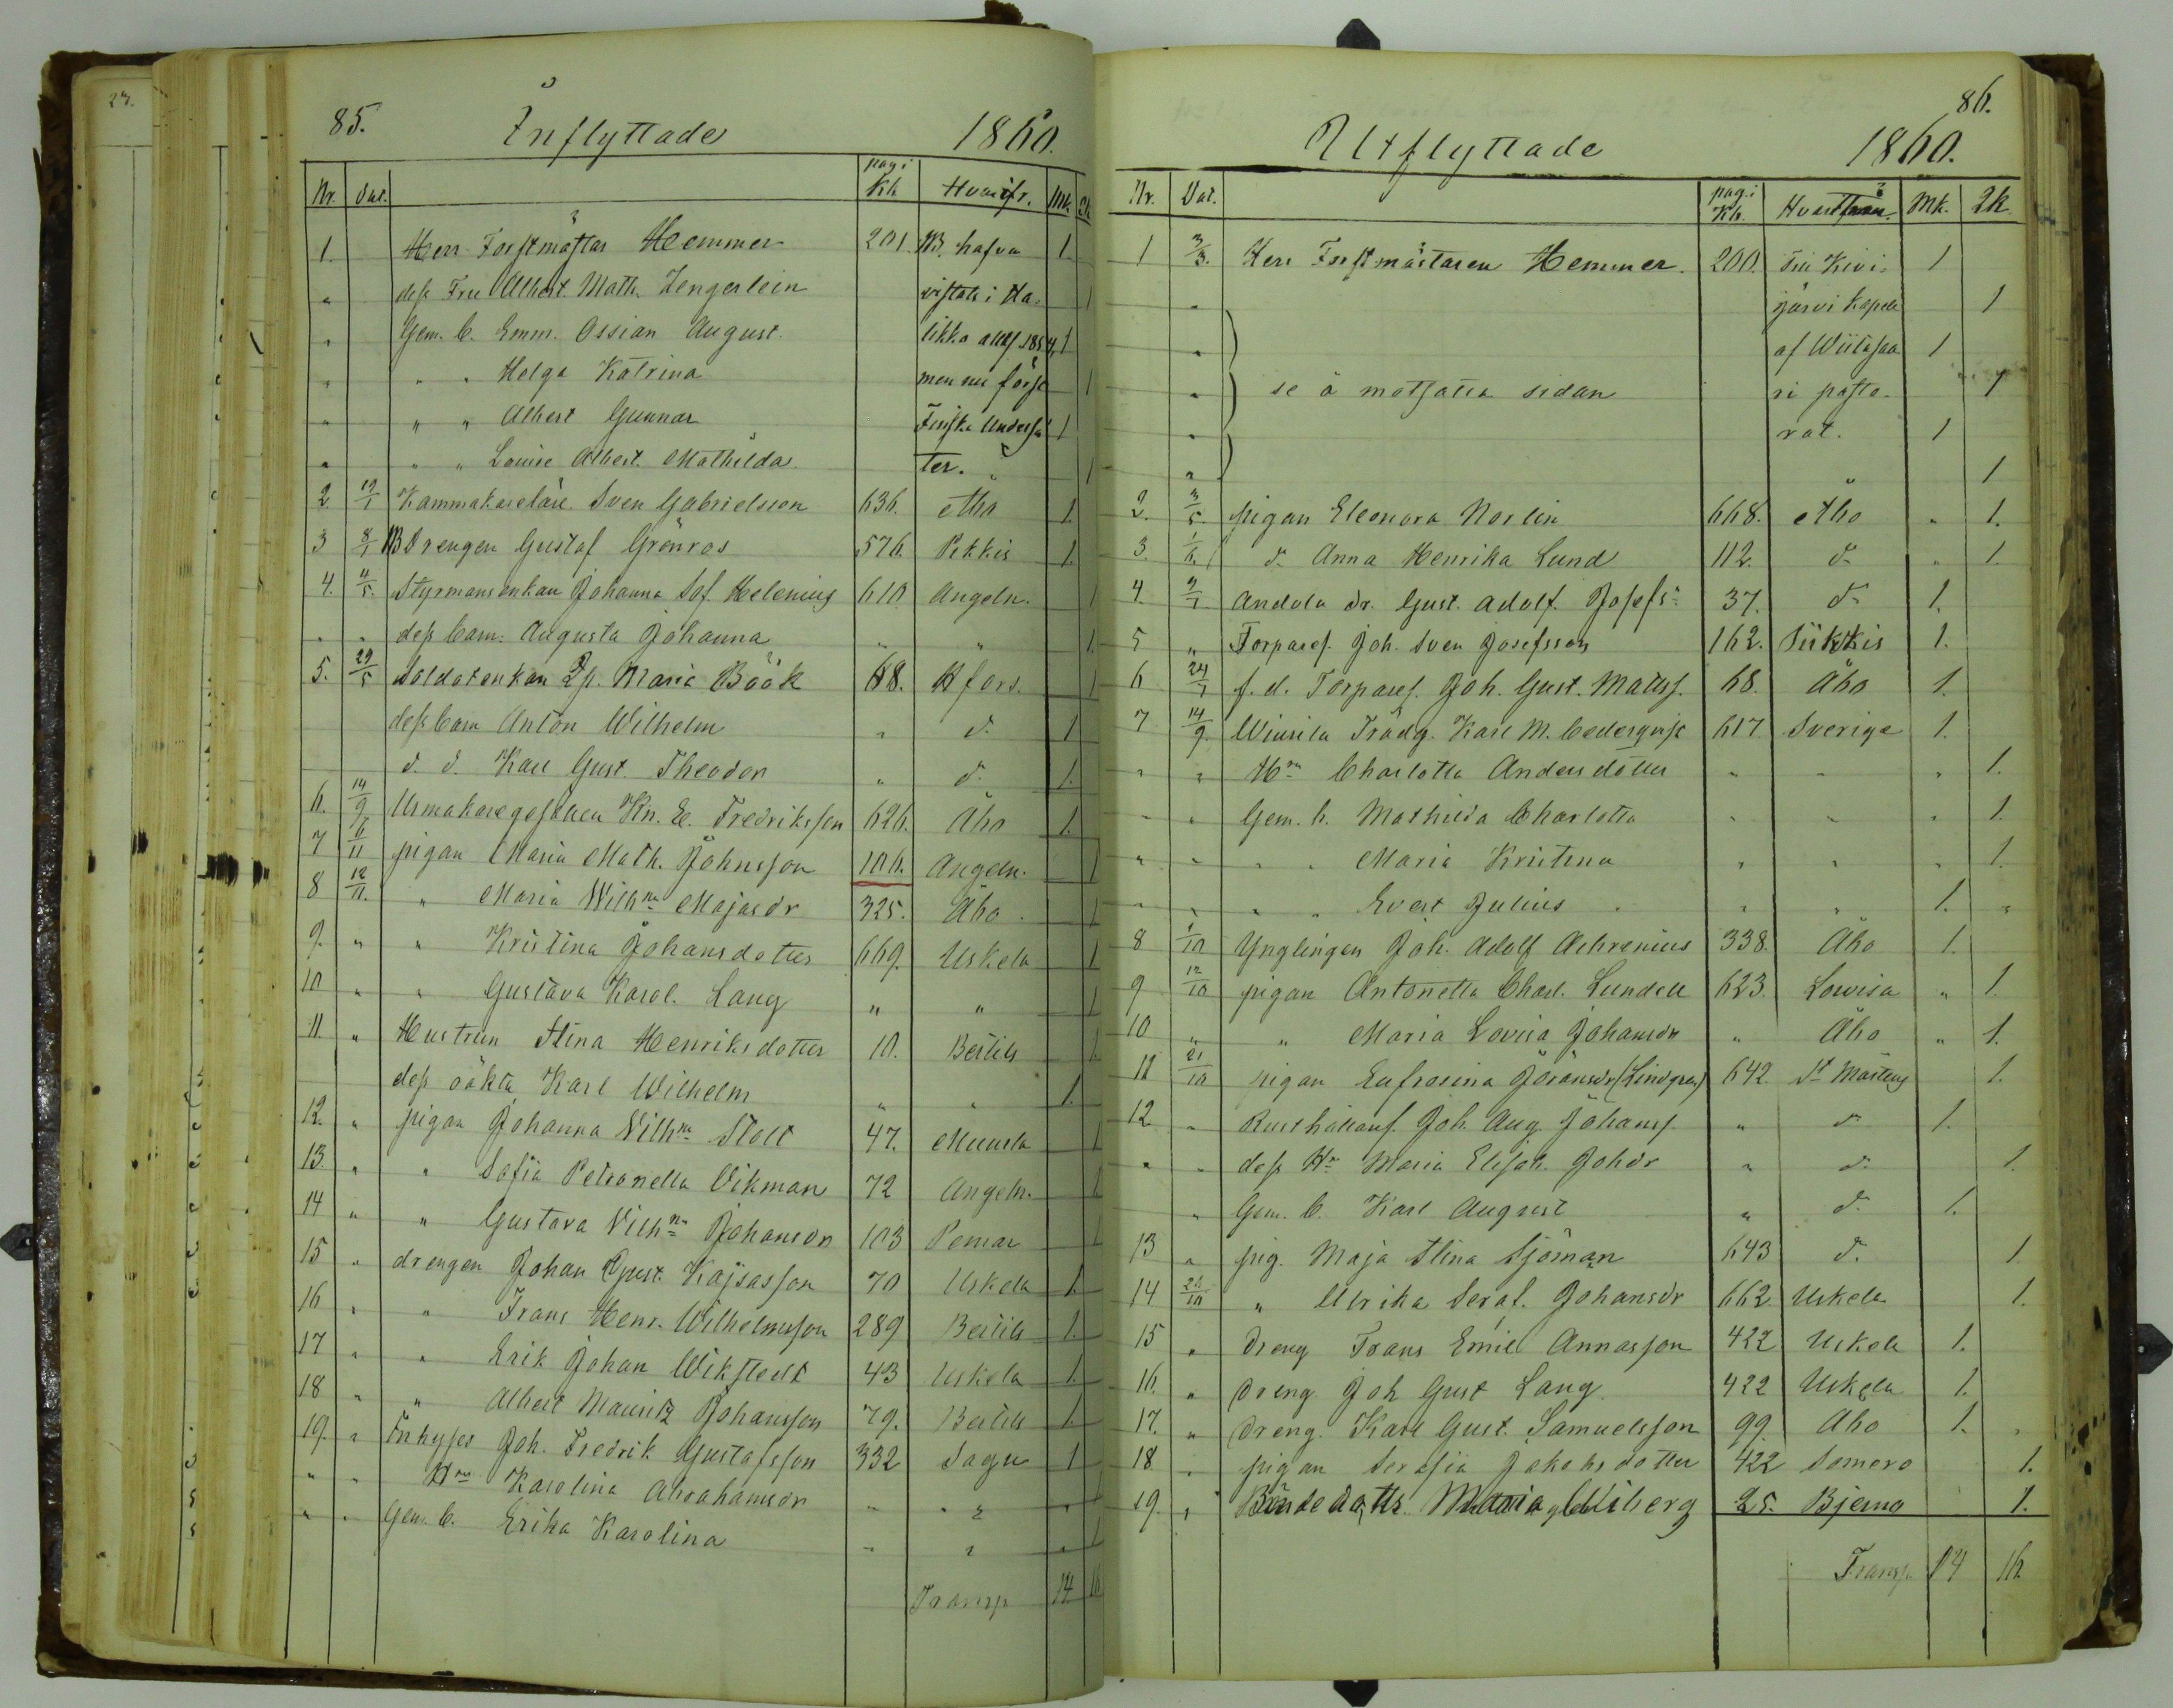 85.
Inflyttade 1860.
Nr. Dat. pag. i Kb. Hvarifr. Mk. Qk
1. Herr Forstmästar Hemmer 201. NB. hafva 1.
" dess Fru Albert. Math. Zengerlein vistats i Ha- 1
" Gem. b. Emm. Ossian August likko allt s. 1854, 1
" " " Helga Katrina men nu först 1
" " " Albert Gunnar Finska underså 1
" " " Louise Albert. Mathilda ter. 1
2 19/1 Kammakarelär. Sven Gabrielsson 636. Åbo 1.
3 8/1 NB Drengen Gustaf Grönros 576. Pikkis 1.
4. 4/5. Styrmansenkan Johanna Sof. Helenius 610 Angeln. 1
" " dess barn. Augusta Johanna " " 1.
5. 29/5 Soldatenkan Maria Böök 68. Hfors. 1
dess barn Anton Wilhelm " d. 1
d. d. Karl Gust. Theodor " d. 1.
6. 14/9 Urmakaregesällen Kn. E. Fredriksson 626. Åbo 1.
7 6/11 pigan Maria Math. Johnsson 106. Angeln. 1
8 12/11. " Maria Wilhna Majasdr 325. Åbo 1
9. " " Kristina Johansdotter 669. Uskela 1
10 " " Gustava Karol. Lang " " 1
11 " Hustrun Stina Henriksdotter 10. Bertils 1
dess oäkta Karl Wilhelm " " 1.
12. " pigan Johanna Vilhna Stolt 47. Muurla 1
13. " " Sofia Petronella Vikman 72 Angeln. 1
14 " " Gustava Vilhna Johansdr 103 Pemar 1
15 " drengen Johan Gust. Kajsasson 70 Uskela 1.
16 " " Frans Henr. Wilhelmsson 289 Bertils 1.
17 " " Erik Johan Wikstedt 43 Uskela 1.
18 " " Albert Mauritz Johansson 79. Bertils 1.
19. " Inhyses Joh. Fredrik Gustafsson 332 Sagu 1
" " Hru Karolina Abrahamsdr " " " 1
" " Gem. b. Erika Karolina " " " 1
Transp 14 16
86.
Utflyttade 1860.
Nr. Dat. pag. i Kb. Hvart Mk. Qk
1 3/3. Herr Forstmästaren Hemmer. 200. till Kivi- 1
" järvi kapell 1
" af Wiitasaa 1
" se å motsatta sidan ri pasto- 1
" rat. 1
" " 1
2. 3/5 pigan Eleonora Norlin 668. Åbo " 1.
3. 1/6. d. Anna Henrika Lund 112. d. " 1.
4. 9/7 Andola dr. Gust. Adolf. Josefs: 37. d. 1.
5 " Torparef. Joh. Sven Josefsson 162. Piikkis 1.
6 24/7 f. d. Torparef. Joh. Gust. Matsf. 68. Åbo 1.
7 14/9. Wiurila Trädg. Karl M. Cederqvist 617 Sverige 1.
" " Hru Charlotta Andersdotter " " " 1.
" " Gem. b. Mathilda Charlotta " " " 1.
" " " " Maria Kristina " " " 1.
" " " " Evert Julius " " 1. "
8 1/10 Ynglingen Joh. Adolf Achrenius 338. Åbo 1.
9 12/10 pigan Antonetta Charl. Lundell 623. Lowisa " 1.
10 " " Maria Lovisa Johansdr " Åbo " 1.
11 21/10 pigan Eufrosina Göransdr (Lindgren) 642 St Mårtens 1.
12 " Rusthållaref. Joh. Aug. Johansf. " d. 1.
" " dess Hu Maria Elisab. Johdr " d. 1.
" Gem. b. Karl August " d. 1.
13 " pig. Maja Stina Sjöman 643 d. 1
14 24/10 " Ulrika Seraf. Johansdr 662 Uskela 1.
15 " Dreng Frans Emil Annasson 422 Uskela 1.
16. " Dreng. Joh Gust Lang 422 Uskela 1.
17. " Dreng. Karl Gust. Samuelsson 99. Åbo 1. "
18 " pigan Serafia Jakobsdotter 422 Somero 1.
19. " Bondedottr. Maria Wiberg 25. Bjerno 1.
Transp. 14 16.